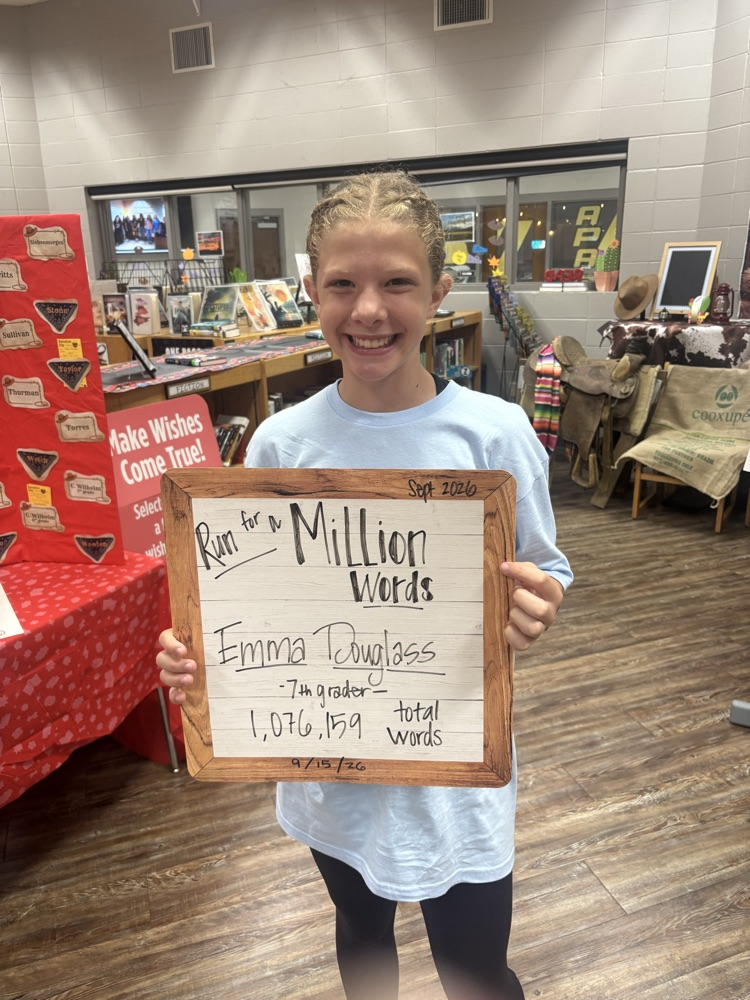 Sept 2026
Run for a Million
Words
Emma Douglass
-7th grader-
1,076,159 total
words
9/15/26
Make Wishes
Come True!
Select
a
wish
Stone
Sullivan
Taylor
Thurman
Torres
C. Wilhelm
C. Wilhelm
FICTION
COOXUPÉ